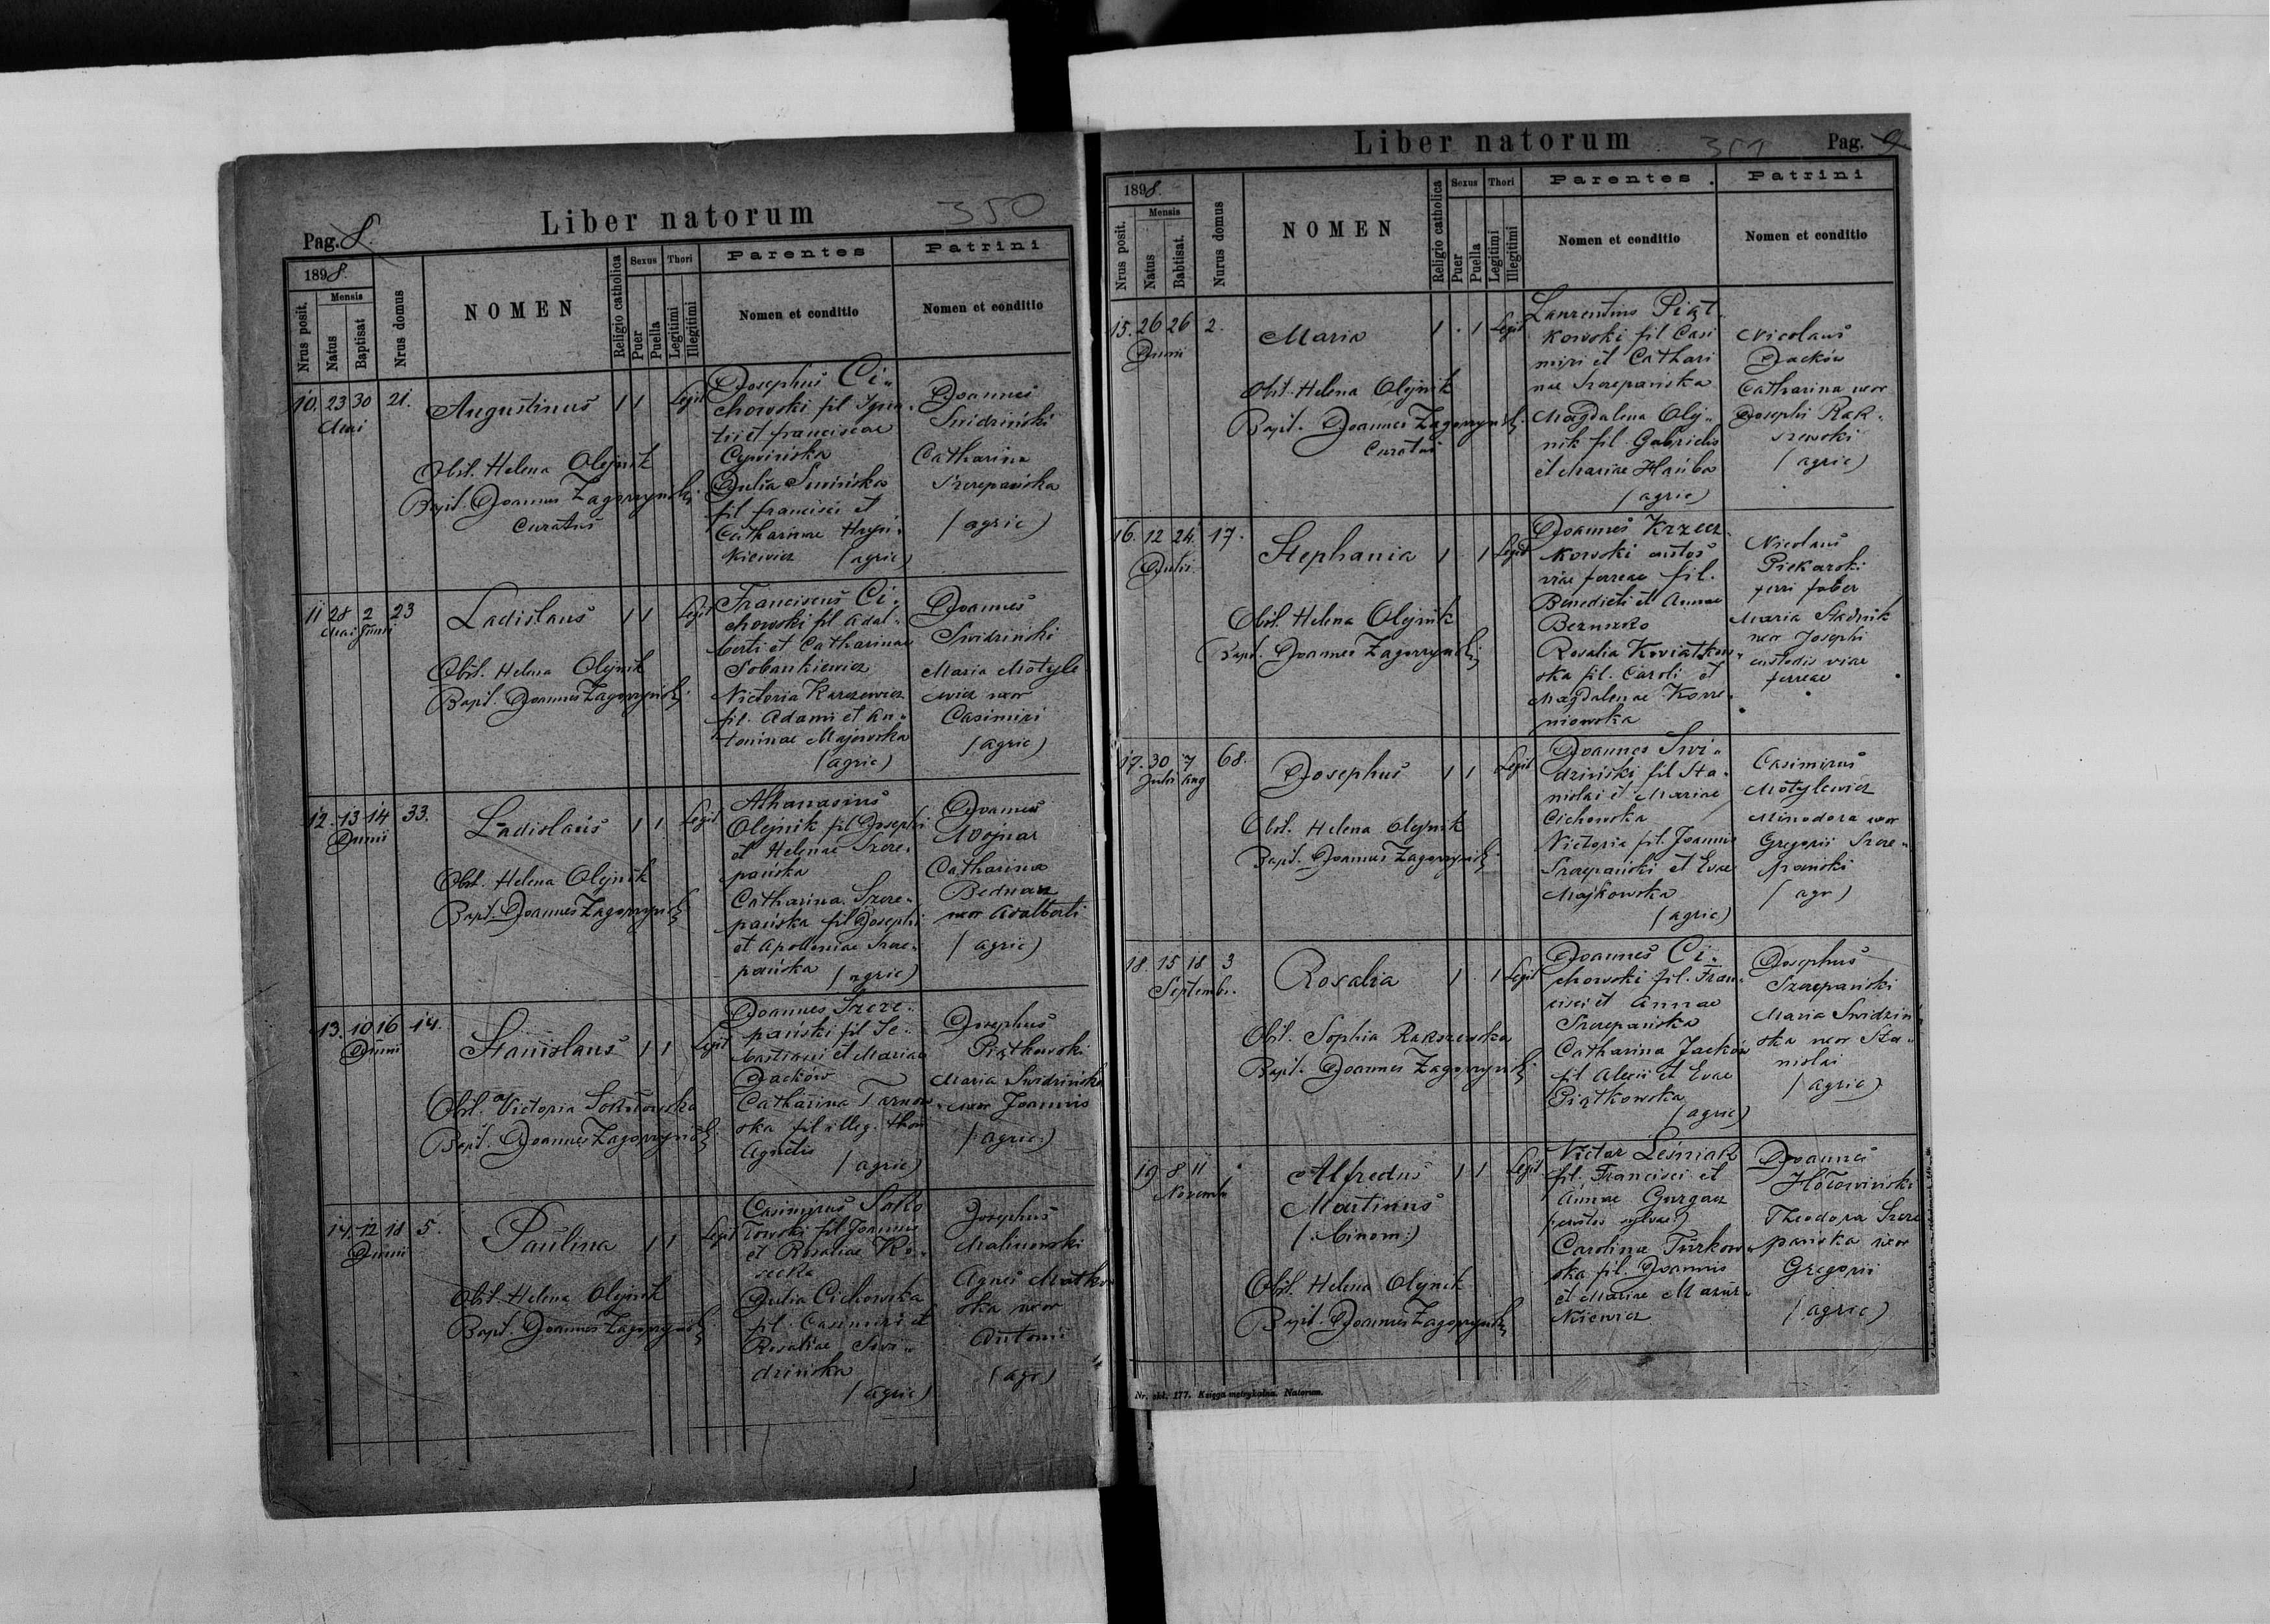 Pag. 8.
Liber natorum
350
1898.
Nrus posit.
Mensis
Natus
Baptisat
Nrus domus
NOMEN
Religio catholica
Sexus
Puer
Puella
Thori
Legitimi
Illegitimi
Parentes
Nomen et conditio
Patrini
Nomen et conditio
10. 23 30 21.
Mai
Augustinus 1 1 Legit
Obst. Helena Olejnik
Bapt. Joannes Zagorzynski
Curatus
Josephus Ci„
chowski fil Igna
tii et franciscae
Cywińska
Julia Swińska
fil francisci et
Catharinae Hryn„
kiewicz (agric)
Joannes
Swidziński
Catharina
Szczepańska
(agric)
11 28 2 23
Mai Junii
Ladislaus 1 1 Legit
Obst. Helena Olejnik
Bapt. Joannes Zagorzynski
Franciscus Ci„
chowski fil Adal„
berti et Catharinae
Sobankiewicz
Victoria Karczewicz
fil. Adami et An„
toninae Majewska
(agric)
Joannes
Swidziński
Maria Motyle
wicz uxor
Casimiri
(agric)
12. 13 14 33.
Junii
Ladislaus 1 1 Legit
Obst. Helena Olejnik
Bapt. Joannes Zagorzynski
Athanasius
Olejnik fil Josephi
et Helenae Szcze„
pańska
Catharina Szcze„
pańska fil Josephi
et Apolloniae Szcze„
pańska (agric)
Joannes
Wojnar
Catharina
Bednarz
uxor Adalberti
(agric)
13. 10 16 14.
Junii
Stanislaus 1 1 Legit
Obst. Victoria Sokołowska
Bapt. Joannes Zagorzynski
Joannes Szcze„
pański fil Se„
bastiani et Mariae
Jacków
Catharina Tarnow„
ska fil illeg. thori
Agnetis
(agric)
Josephus
Piątkowski
Maria Swidzińska
uxor Joannis
(agric.)
14. 12 18 5.
Junii
Paulina 1 1 Legit
Obst. Helena Olejnik
Bapt. Joannes Zagorzynski
Casimirus Soko
łowski fil Joannis
et Rosaliae Ko„
secka
Julia Cichowska
fil. Casimiri et
Rosaliae Swi„
dzińska
(agric)
Josephus
Malinowski
Agnes Matkow
ska uxor
Antonii
(agr)
Liber natorum
351
Pag. 9
1898.
Nrus posit.
Mensis
Natus
Babtisat.
Nurus domus
NOMEN
Religio catholica
Sexus
Puer
Puella
Thori
Legitimi
Illegitimi
Parentes
Nomen et conditio
Patrini
Nomen et conditio
15. 26 26 2.
Junii
Maria 1 . 1 Legit
Obst. Helena Olejnik
Bapt. Joannes Zagorzynski
Curatus
Laurentius Piąt„
kowski fil Casi
miri et Cathari
nae Szczepańska
Magdalena Olej„
nik fil. Gabrielis
et Mariae Hańba
(agric)
Nicolaus
Jacków
Catharina uxor
Josephi Rak„
szewski
(agric)
16. 12 24. 17.
Julii
Stephania 1 1 Legit
Obst. Helena Olejnik
Bapt. Joannes Zagorzynski
Joannes Krzecz„
kowski custos
viae ferreae fil.
Benedicti et Annae
Bezuszko
Rosalia Kwiatkow„
ska fil. Caroli et
Magdalenae Korze„
niowska
Nicolaus
Piekarski
ferri faber
Maria Stadnik
uxor Josephi
custodis viae
ferreae
17. 30 7 68.
Julii Aug
Josephus 1 1 Legit
Obst. Helena Olejnik
Bapt. Joannes Zagorzynski
Joannes Swi„
dziński fil Sta„
nislai et Mariae
Cichowska
Victoria fil. Joannis
Szczepański et Evae
Majkowska
(agric)
Casimirus
Motylewicz
Minodora uxor
Gregorii Szcze„
pański
(agr)
18. 15 18 3
Septembr.
Rosalia 1 . 1 Legit
Obst. Sophia Rakszewska
Bapt. Joannes Zagorzynski
Joannes Ci„
chowski fil. Fran„
cisci et Annae
Szczepańska
Catharina Jacków
fil Alexii et Evae
Piątkowska
(agric)
Josephus
Szczepański
Maria Swidziń„
ska uxor Sta„
nislai
(agric)
19 8 11
Novemb
Alfredus 1 1 Legit.
Martinus
(:binom:)
Obst. Helena Olejnik
Bapt. Joannes Zagorzynski
Victor Leśniak
fil. Francisci et
Annae Gurgacz
(custos sylvae)
Carolina Turkow„
ska fil. Joannis
et Mariae Mazur„
kiewicz
Joannes
Hołowiński
Theodora Szcze
pańska uxor
Gregorii
(agric)
Nr. skł. 177. Księga metrykalna. Natorum.